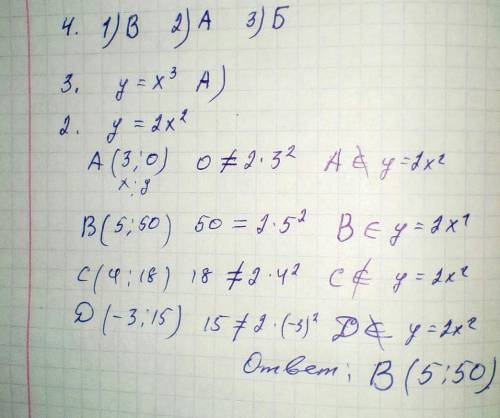 4. 1) В 2) А 3) Б
3. y = x³ А)
2. y = 2x²
A (3; 0) 0 ≠ 2·3² A ∉ y = 2x²
x; y
B (5; 50) 50 = 2·5² B ∈ y = 2x²
C (4; 18) 18 ≠ 2·4² C ∉ y = 2x²
D (-3; 15) 15 ≠ 2·(-3)² D ∉ y = 2x²
Ответ: B (5; 50)